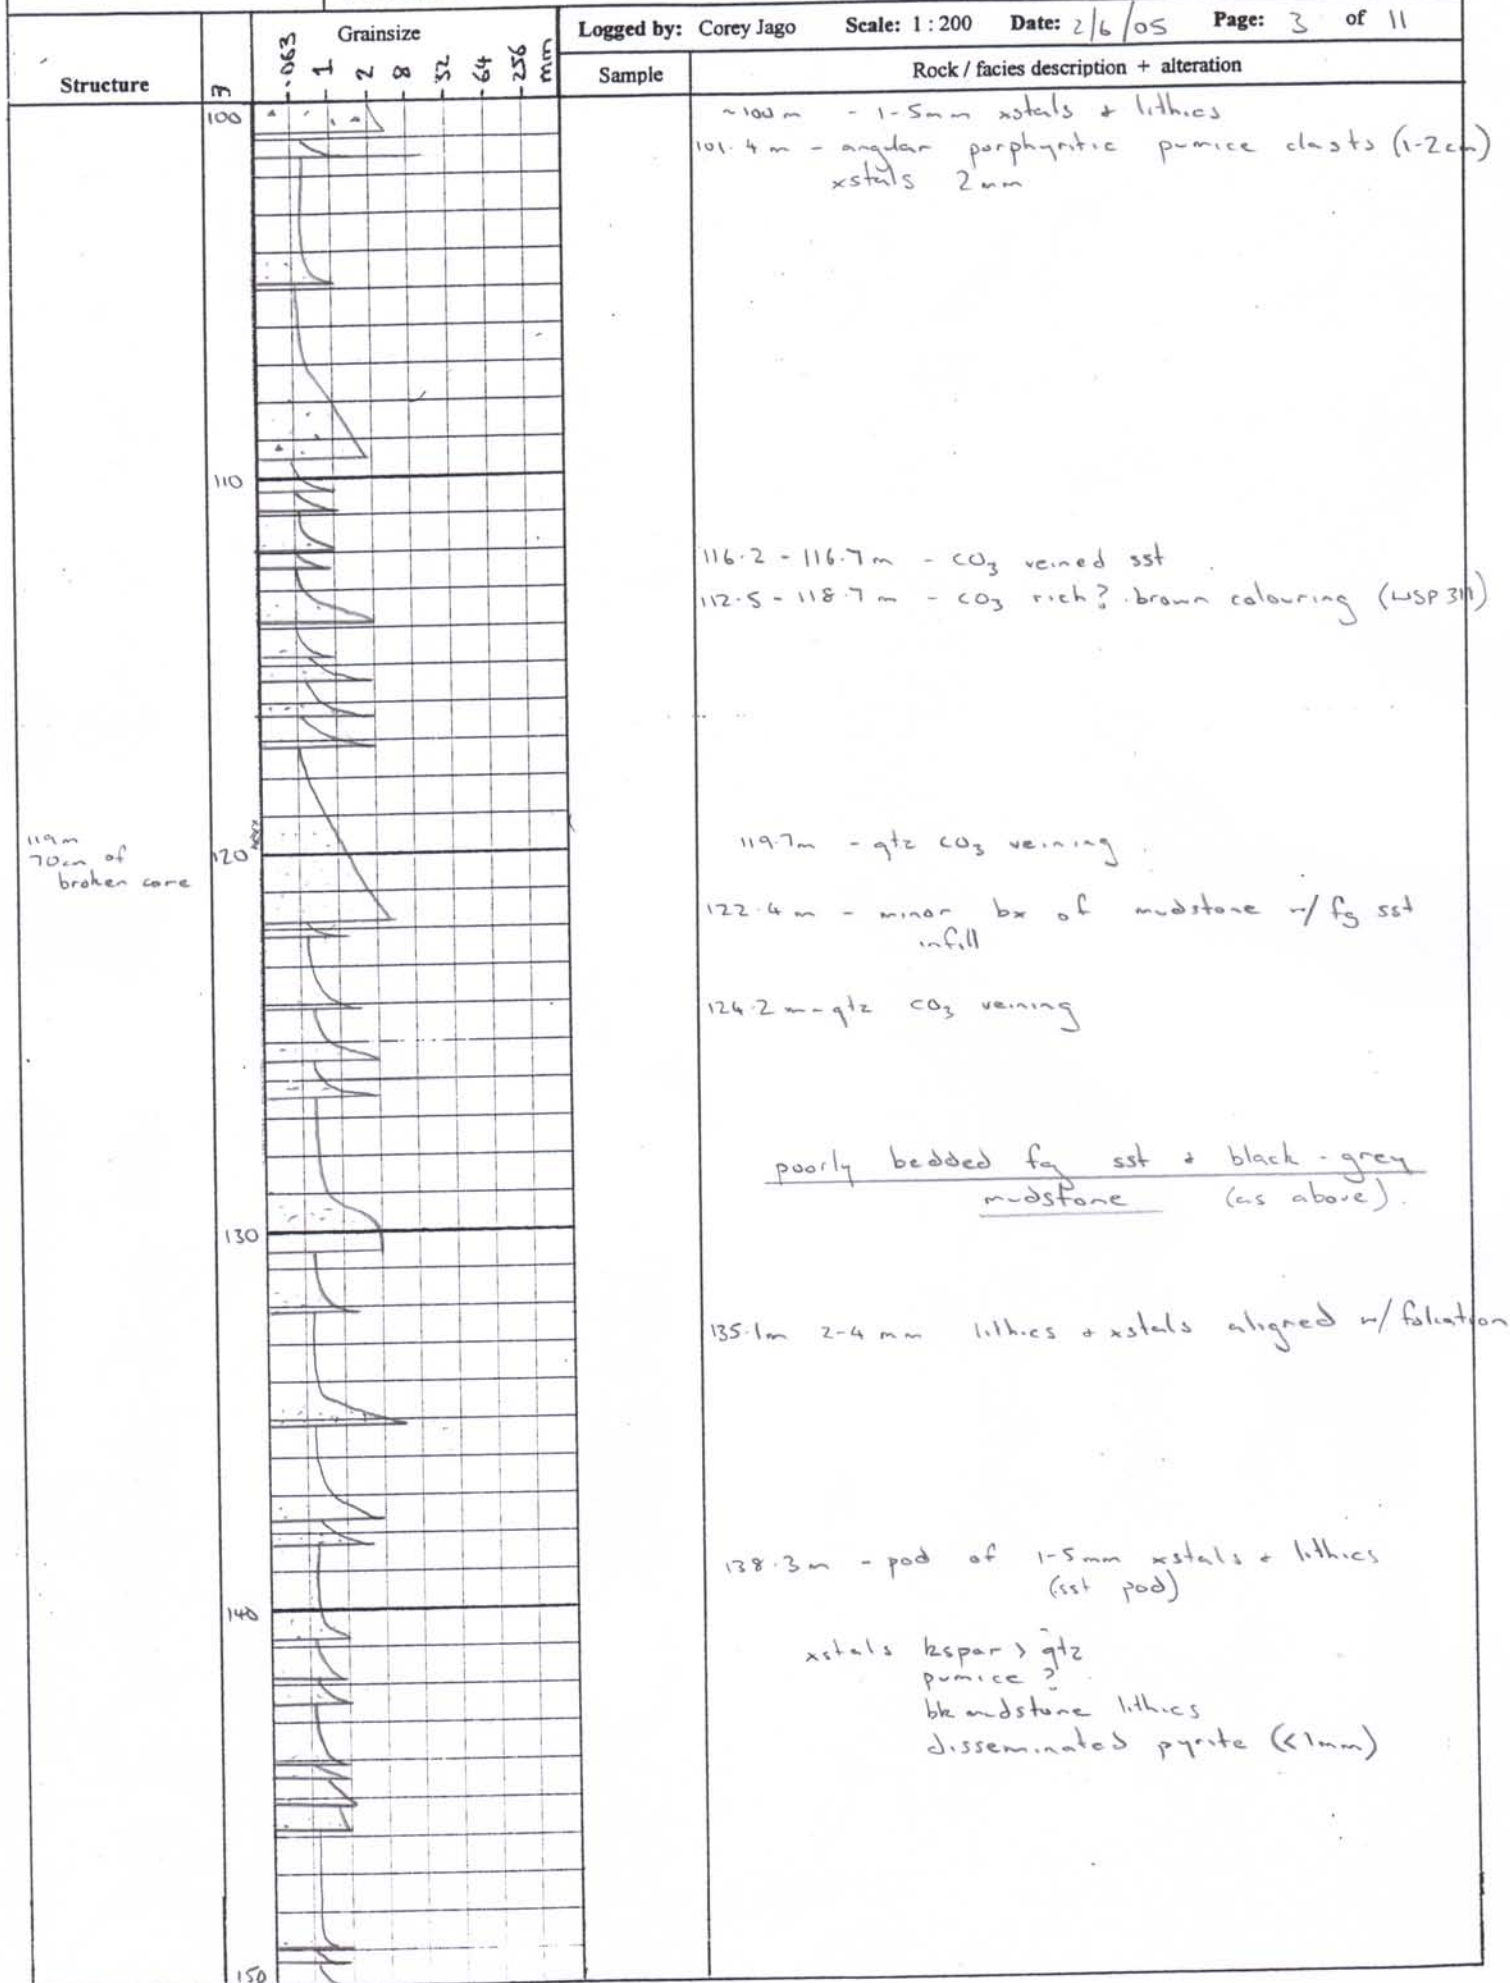 Logged by: Corey Jago Scale: 1 : 200 Date: 2/6/05 Page: 3 of 11
Structure
m
Grainsize
.063 1 2 8 32 64 256 mm
Sample
Rock / facies description + alteration
100
~100 m - 1-5mm xstals + lithics
101.4 m - angular porphyritic pumice clasts (1-2cm)
xstals 2mm
110
116.2 - 116.7 m - CO3 veined sst
112.5 - 118.7 m - CO3 rich? brown colouring (WSP 311)
119m
70cm of
broken core
120
119.7m - qtz CO3 veining
122.4 m - minor bx of mudstone w/ fg sst
infill
124.2 m - qtz CO3 veining
poorly bedded fg sst + black - grey
mudstone (as above).
130
135.1m 2-4 mm lithics + xstals aligned w/ foliation
138.3 m - pod of 1-5mm xstals + lithics
(sst pod)
140
xstals kspar > qtz
pumice ?
bk mudstone lithics
disseminated pyrite (<1mm)
150